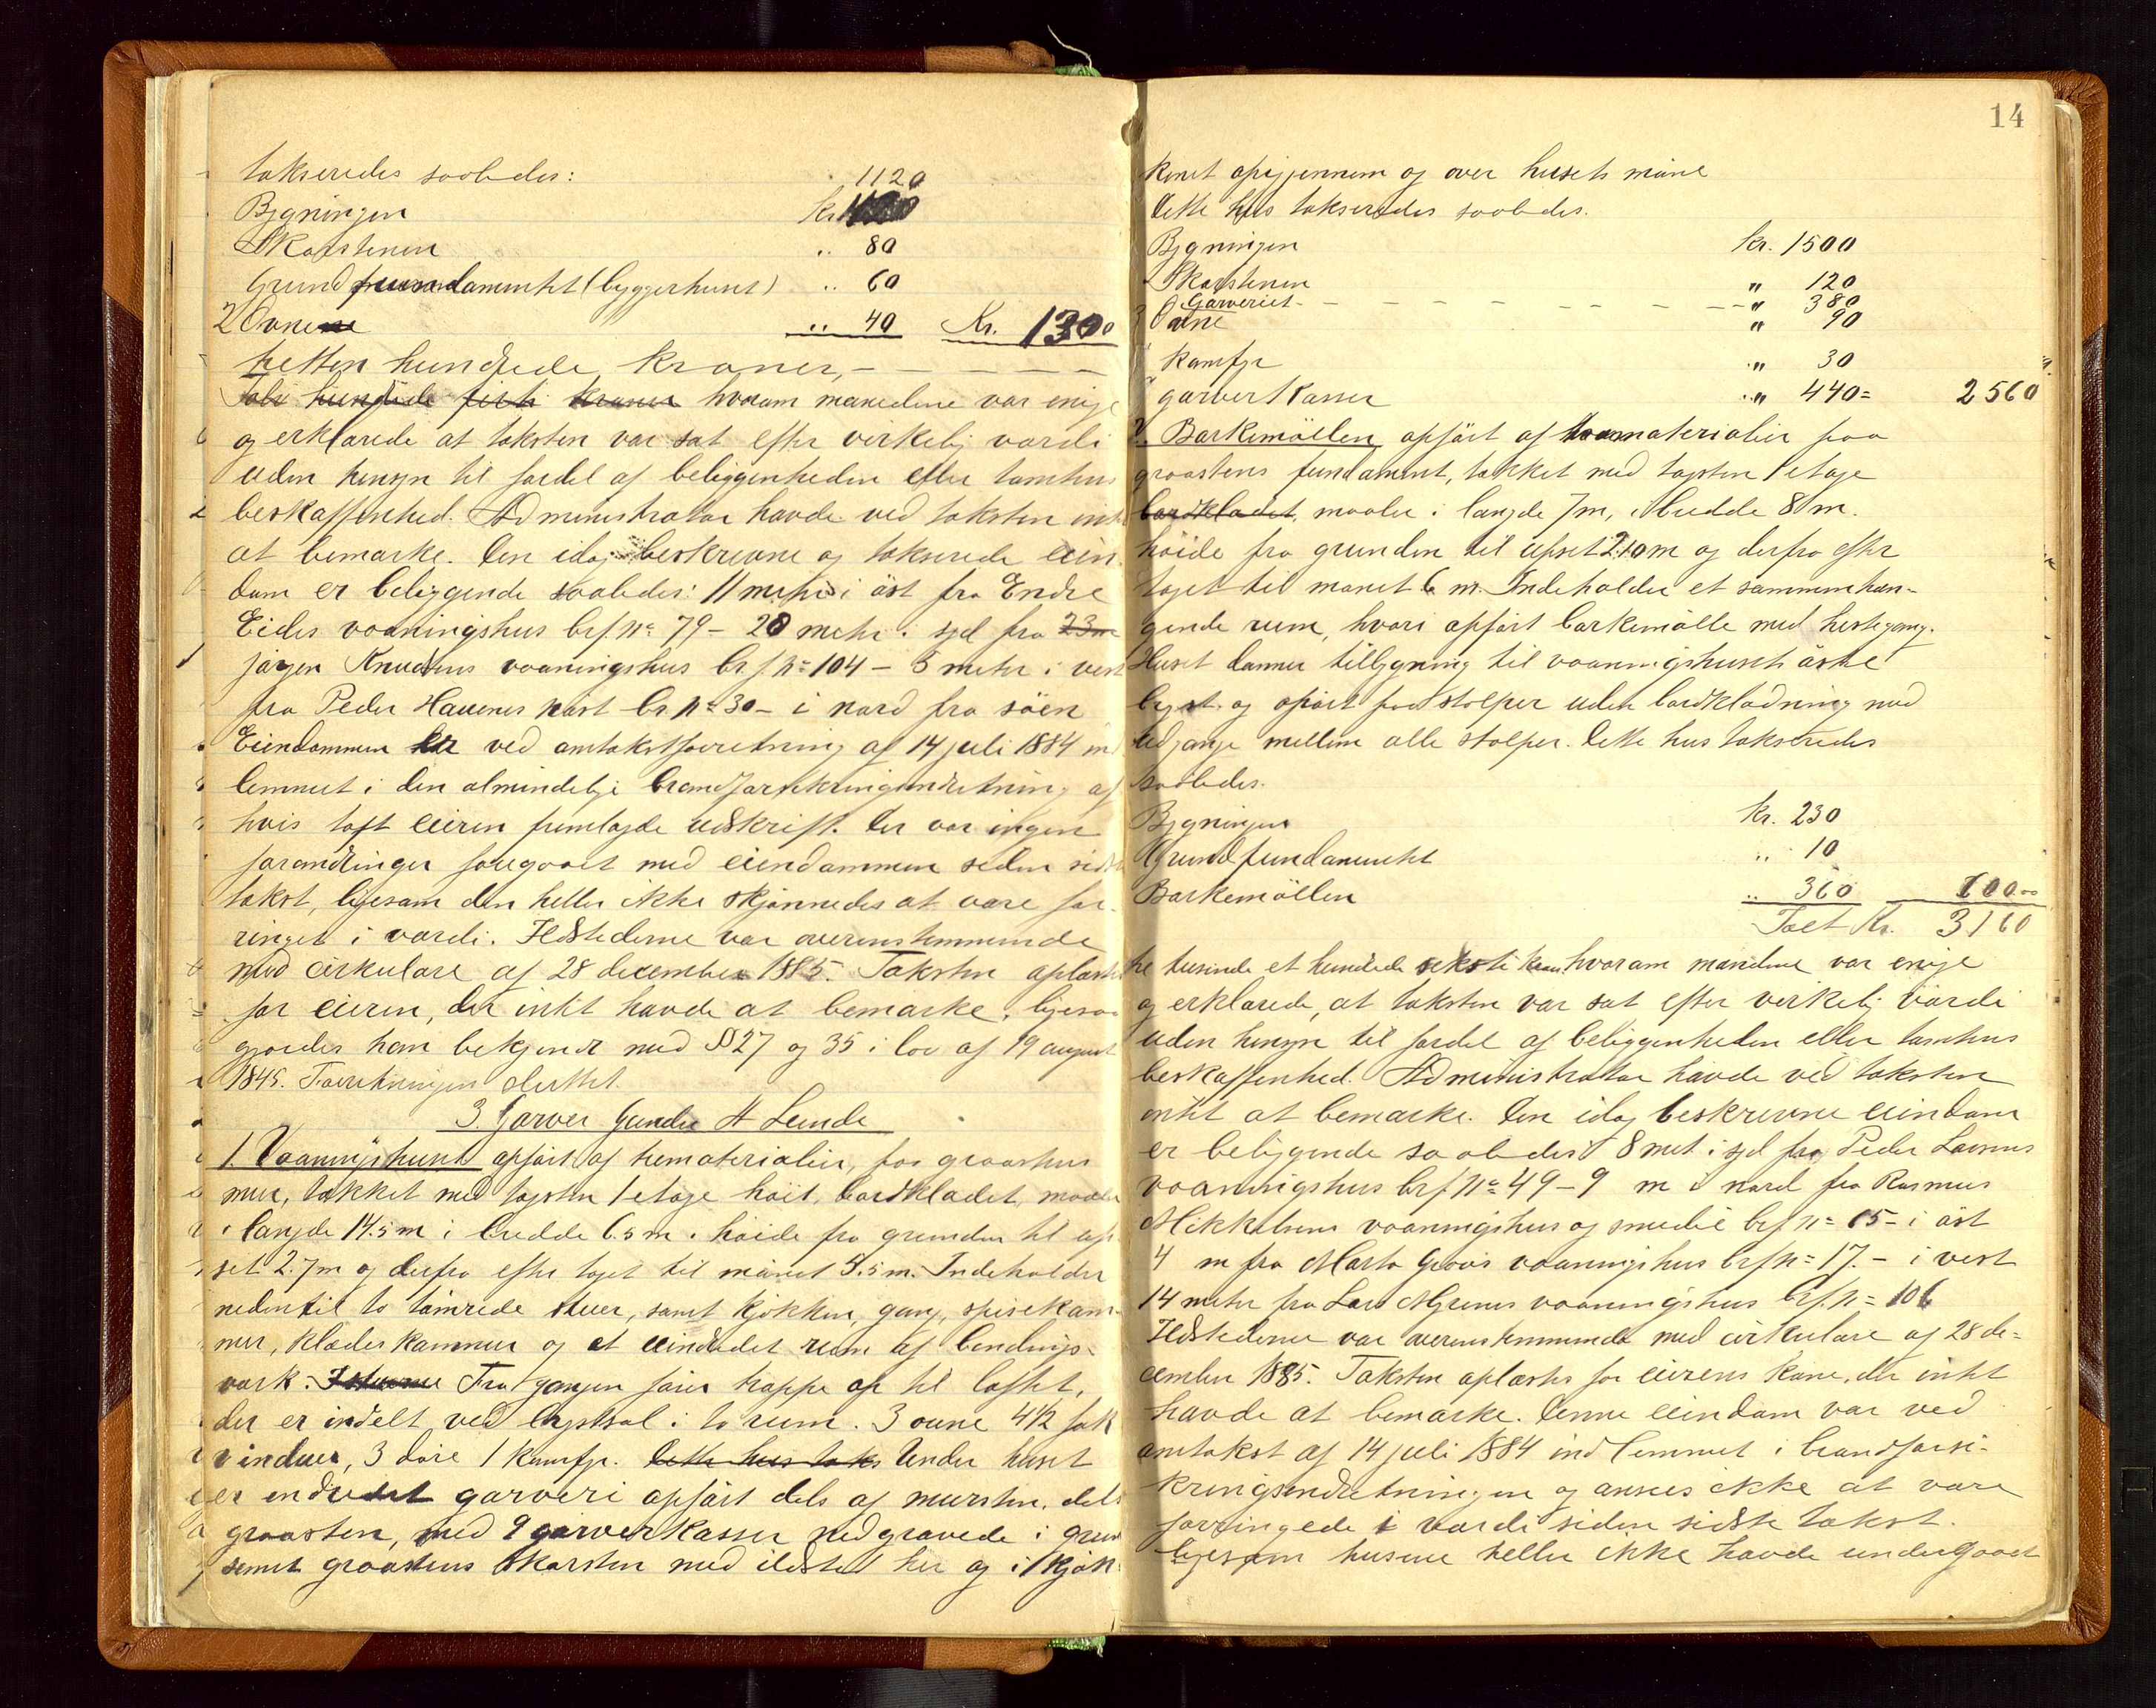 takseredes saaledes:
1120
Bygningen kr.
Skorstenen .. 80
Grundfundamentet (byggerhuset) .. 60
2 Ovne .. 40 Kr. 1300
tretten hundrede kroner, - - - - -
Tolv hundrede firti kroner hvorom mændene var enige
og erklærede at taksten var sat efter virkelig værdi
uden hensyn til fordel af beliggenheden eller tomtens
beskaffenhed. Administrator havde ved taksten intet
at bemærke. Den idag beskrevne og takserede eien
dom er beliggende saaledes: 11 meter i øst fra Endre
Eides vaaningshus brf. No 79 - 20 meter i syd fra 23m
Jørgen Knudsens vaaningshus br.f. No 104 - 5 meter i vest
fra Peder Hauenes br. No 30 - i nord fra søen
Eiendommen er ved omtakstforretning af 14 juli 1884 ind
lemmet i den almindelige brandforsikringsindretning af
hvis taxt eieren fremlagde udskrift. Der var ingen
forandringer foregaaet med eiendommen siden sidste
takst, ligesom den heller ikke skjønnedes at være for-
ringet i værdi. Ildstederne var overensstemmende
med cirkulære af 28 december 1885. Taksten oplæstes
for eieren, der intet havde at bemærke, ligesaa
gjordes han bekjendt med §§ 27 og 35 i lov af 19 august
1845. Forretningen sluttet.
3. Garver Gunder H Lunde
1. Vaaningshuset opført af træmaterialier, paa graastens
mur, tækket med tagsten 1 etage høit, bordklædet, maaler
i længde 14.5 m i bredde 6.5 m. høide fra grunden til op
set 2.7m og derfra efter taget til mønet 5.5 m. Indeholder
nedentil to tømrede stuer, samt kjøkken, gang, spisekam-
mer, klæderkammer og et eindredet rum af bindings-
værk. Fra gangen fører trappe op til loftet,
der er indelt ved brystval i to rum. 3 ovne 4 1/2 fak
vinduer, 3 døre 1 komfyr. Dette hus taks Under huset
er indredet garveri opført dels af mursten, dels
graasten, med 9 garverkasser nedgravede i grun
samt graastens skorsten med ildsted her og i kjøk-
14
kenet opigjennem og over husets møne
Dette hus takseredes saaledes.
Bygningen kr. 1500
Skorstenen " 120
Garveriet - - - - - - - " 380
3 Ovne " 90
1 Komfyr " 30
9 garverkasser " 440= 2560
2. Barkemøllen opført af træmaterialier paa
graastens fundament, tækket med tagsten 1 etage
bordklædet, maaler i længde 7m, i bredde 8 m.
høide fra grunden til opset 2.10 m og derfra efter
taget til mønet 6 m. Indeholder et sammenhæn-
gende rum, hvori opført barkemølle med hestegang.
Huset danner tilbygning til vaaningshusets østre
bygst. og opført paa stolper uden bordklædning med
udgange mellem alle stolper. Dette hus takseredes
saaledes.
Bygningen kr. 230
Grundfundamentet .. 10
Barkemøllen .. 360 600 00
Talt Kr. 3160
tre tusinde et hundrede seksti kron. hvorom mændene var enige
og erklærede, at taksten var sat efter virkelig værdi
uden hensyn til fordel af beliggenheden eller tomtens
beskaffenhed. Administrator havde ved taksten
intet at bemærke. Den idag beskrevne eiendom
er beliggende saaledes: 8 met i syd fra Peder
vaaningshus brf No 49 - 9 m i nord fra Rasmus
Mikkelsens vaaningshus og smedie brf. No 15 - i øst
4 m fra Marta vaaningshus brf No 17. - i vest
14 meter fra Lars vaaningshus brf. No 106
Ildstederne var overensstemmende med cirkulære af 28 de-
cember 1885. Taksten oplæstes for eierens kone, der intet
havde at bemærke. Denne eiendom var ved
omtakst af 14 juli 1884 indlemmet i brandforsi-
kringsindretningen og ansees ikke at være
forringede i værdi siden sidste takst.
ligesom husene heller ikke havde undergaaet